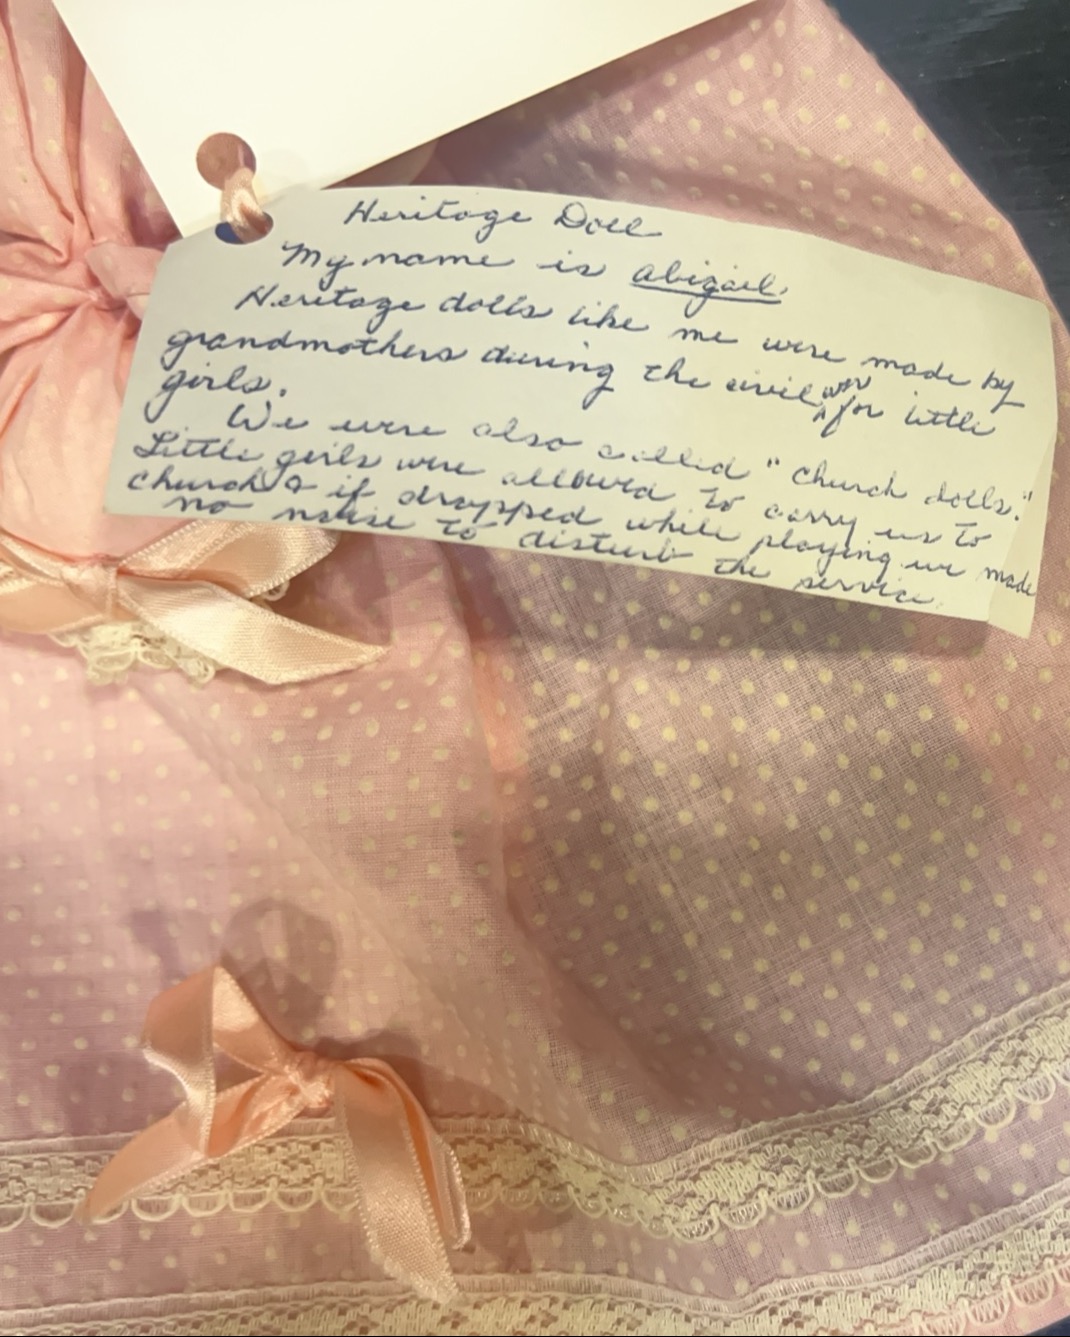 Heritage Doll
My name is abigail.
Heritage dolls like me were made by
grandmothers during the civil war for little
girls.
We were also called "church dolls."
Little girls were allowed to carry us to
church & if dropped while playing we made
no noise to disturb the service.